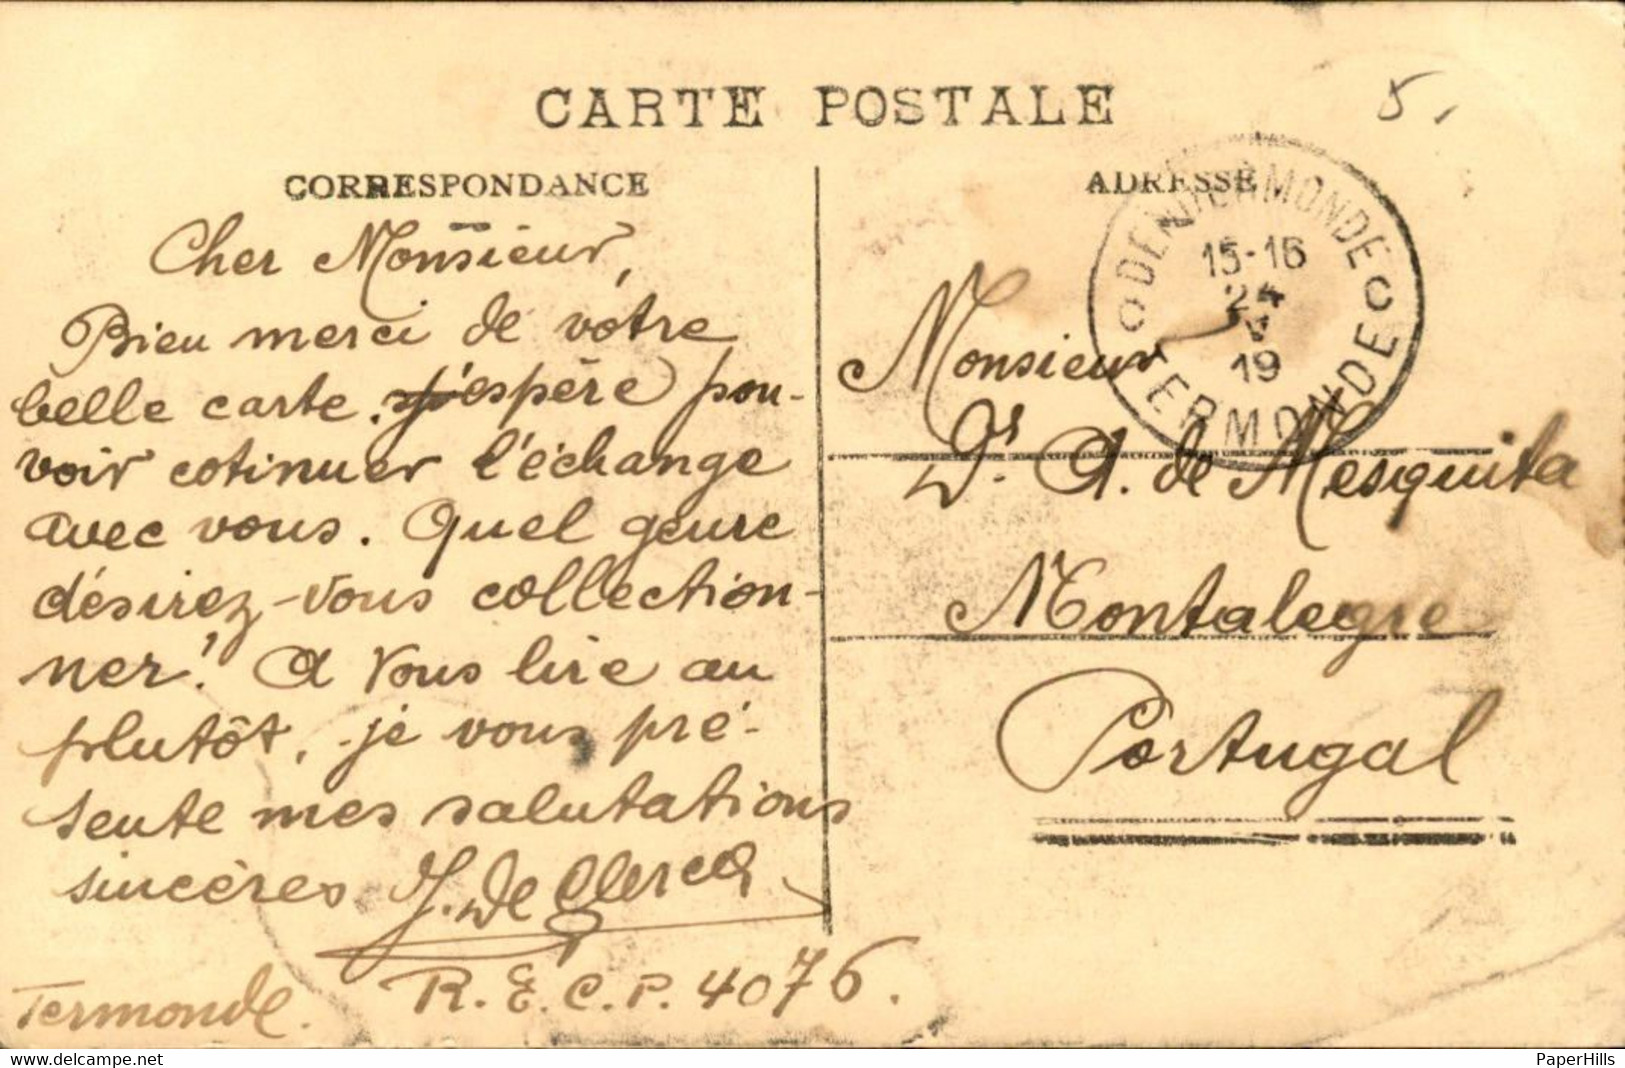 CARTE POSTALE
5.
CORRESPONDANCE
Cher Monsieur,
Bien merci de vôtre
belle carte. j'espère pou-
voir cotinuer l'échange
avec vous. Quel genre
désirez-vous collection-
ner! A vous lire au
plutôt, je vous pré-
sente mes salutations
sincères J. De Clercq
R.E.C.P. 4076.
Termonde.
ADRESSE
DENDERMONDE
15-16
24
V
19
TERMONDE
Monsieur
Dr. A. de Mesquita
Montalegre
Portugal
www.delcampe.net
PaperHills